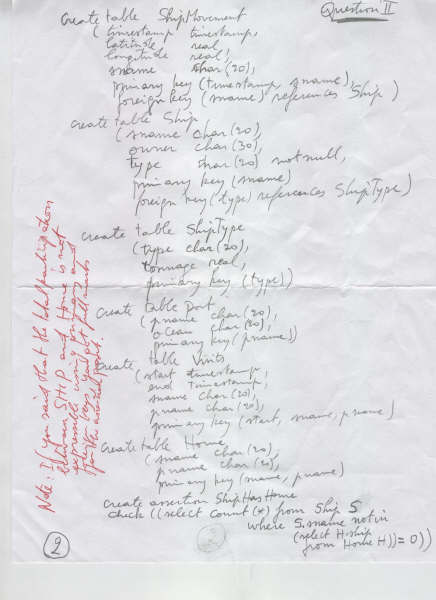 Question II
create table ShipMovement
( timestamp timestamp,
latitude real
longitude real,
sname char(20),
primary key (timestamp, sname),
foreign key (sname) references Ship )
create table Ship
(sname char(20),
owner char(30),
type char(20) not null,
primary key (sname)
foreign key (type) references ShipType)
create table ShipType
(type char(20),
tonnage real,
primary key (type))
create table Port
(pname char(20),
ocean char(20),
primary key (pname))
create table Visits
(start timestamp,
end timestamp,
sname char(20),
pname char(20),
primary key (start, sname, pname)
create table Home
(sname char(20),
pname char(20),
primary key (sname, pname)
create assertion ShipHasHome
check ((select count (*) from Ship S
where S.sname not in
(select H.ship
from Home H)) = 0))
Note: If you said that the total participation
between SHIP and Home is not
expressible using primary and
foreign keys you get full marks
for the part.
2